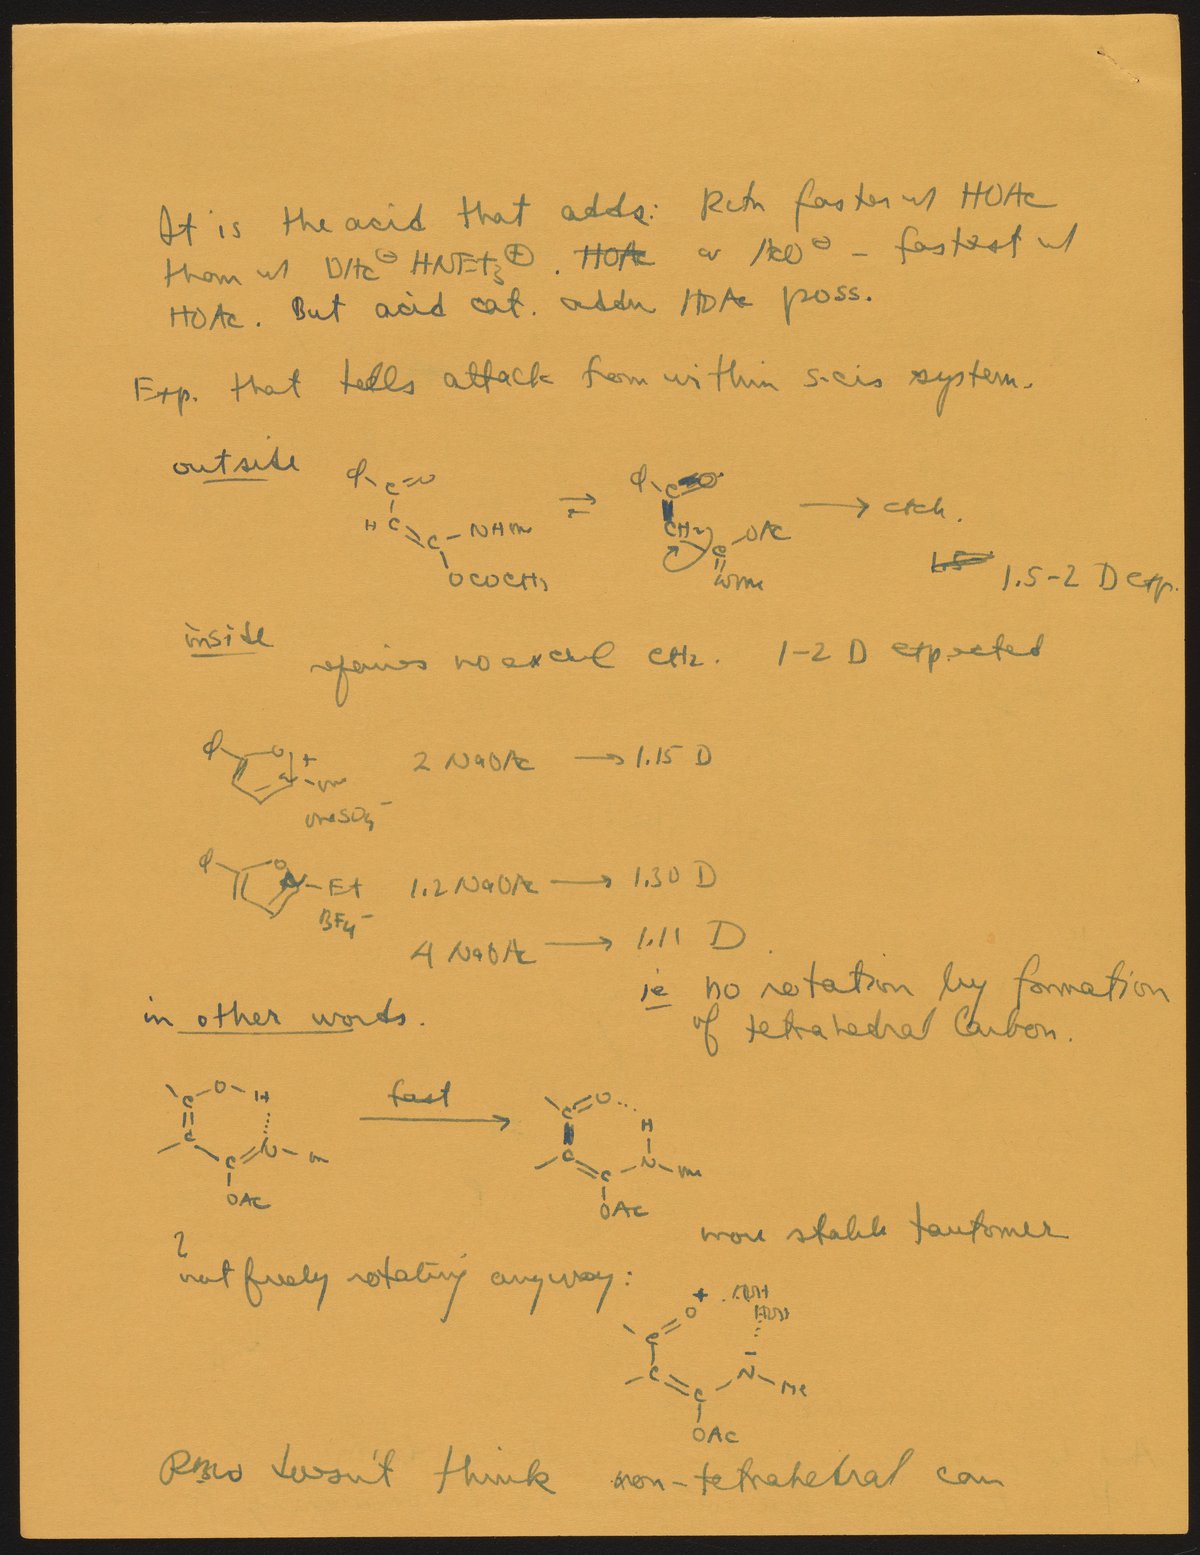 It is the acid that adds: Rctn faster w/ HOAc
than w/ OAc⊖ HNEt₃⊕. HOAc or ⊖ – fastest w/
HOAc. But acid cat. addn HOAc poss.
Exp. that tells attack from within s-cis system.
outside
φ C=O
H C
C - NHMe
OCOCH₃
⇌
φ C O
CH₂
C OAc
NMe
→ etch.
1.5
1.5-2 D exp.
inside
requires no excul CH₂. 1-2 D expected
φ O + N-Me
MeSO₄⁻
2 NaOAc → 1.15 D
φ O N-Et
BF₄⁻
1.2 NaOAc → 1.30 D
4 NaOAc → 1.11 D.
ie no rotation by formation
of tetrahedral Carbon.
in other words.
C-O-H
C
C=N-m
OAc
fast
C=O
H
C
C-N-Me
OAc
more stable tautomer
? not freely rotating anyway:
+
C=O
C=C-N-Me
OAc
doesn't think non-tetrahedral can